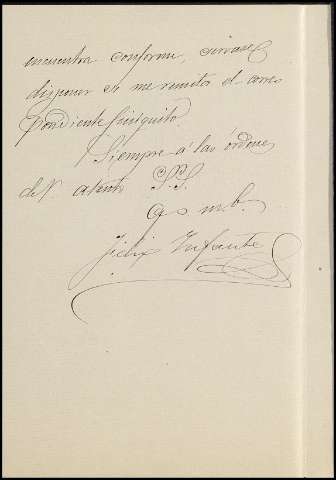 encuentra conforme, sirvase
disponer se me remita el corres
pondiente finiquito.
Siempre á las órdenes
de V. atento S.S.
q s m b.
Felix Infante